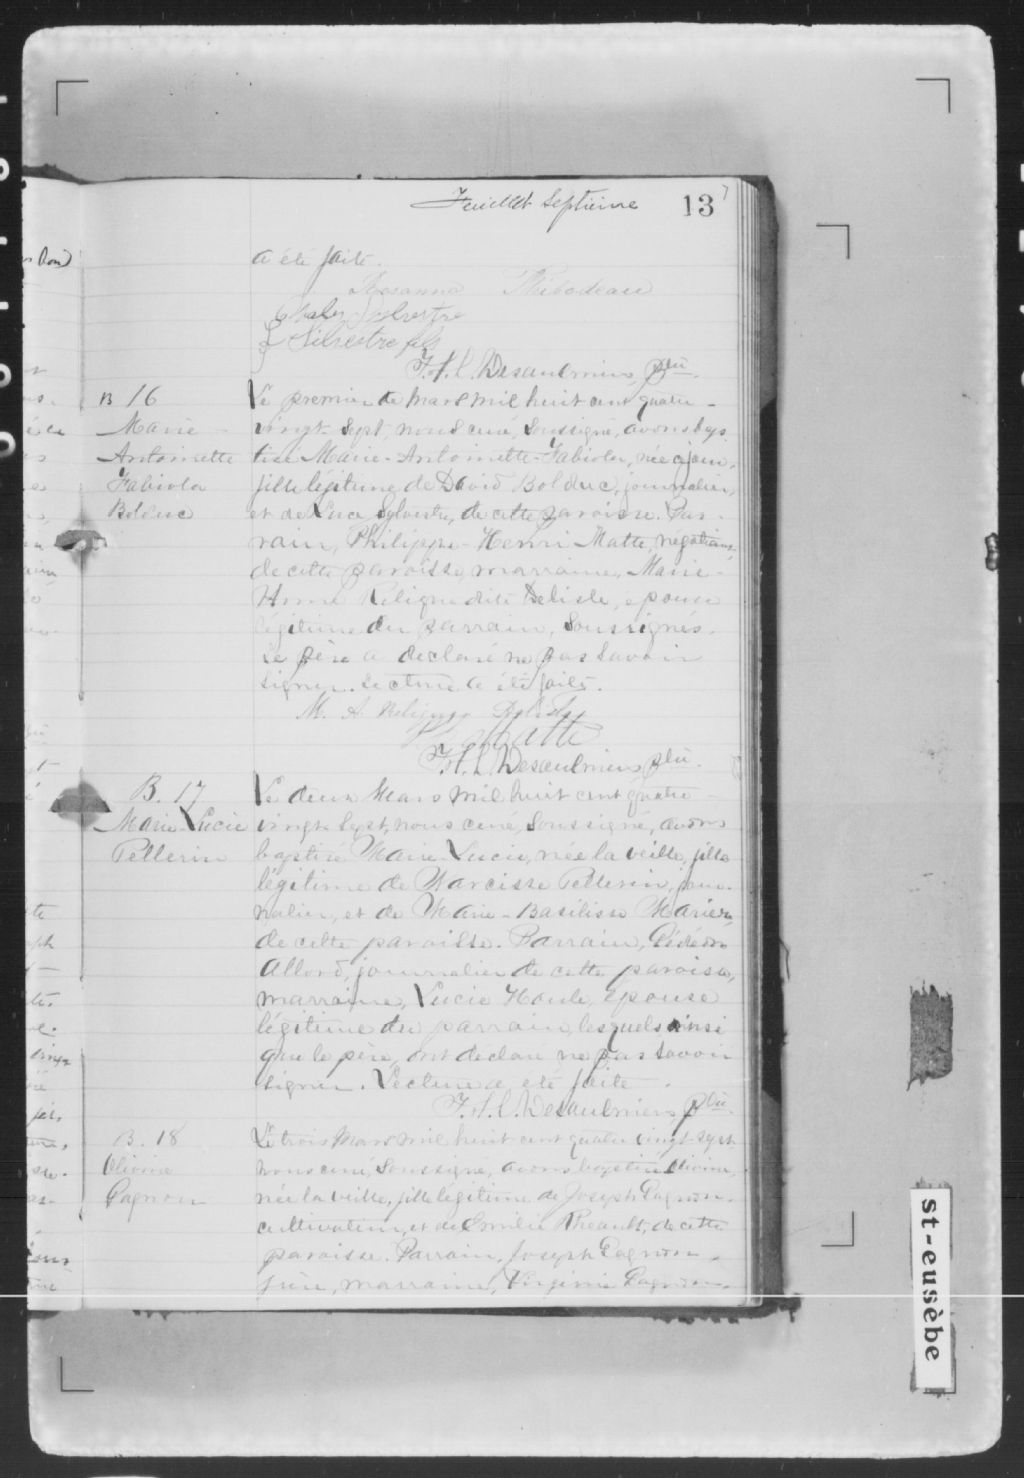 Feuillet Septième 13
a été faite.
Rosanna Thibodeau
Silvestre
Silvestre fils
F.X.L. Desaulniers, ptre.
B 16
Marie
Antoinette
Fabiola
Bolduc
Le premier de Mars mil huit cent quatre-
vingt-sept, nous curé, soussigné, avons bap
tisé Marie-Antoinette-Fabiola, née ce jour,
fille légitime de David Bolduc, journalier,
et de Luce Sylvestre, de cette paroisse. Par-
rain, Philippe-Henri Matte, négociant
de cette paroisse, marraine, Marie-
dite Delisle, épouse
légitime du parrain, soussignés.
Le père a déclaré ne pas savoir
signer. Lecture a été faite.
M. A. Delisle
Matte
F.X.L. Desaulniers ptre.
B. 17
Marie-Lucie
Pellerin
Le deux Mars mil huit cent quatre-
vingt-sept, nous curé, soussigné, avons
baptisé Marie-Lucie, née la veille, fille
légitime de Narcisse Pellerin, jour-
nalier, et de Marie-Basilisse
de cette paroisse. Parrain, Gédéon
Allard, journalier de cette paroisse,
marraine, Lucie Houle, épouse
légitime du parrain, lesquels ainsi
que le père, ont déclaré ne pas savoir
signer. Lecture a été faite.
F.X.L. Desaulniers, ptre.
B. 18
Olivine
Gagnon
Le trois Mars mil huit cent quatre vingt-sept
nous curé, soussigné, avons baptisé Olivine,
née la veille, fille légitime de Joseph Gagnon
cultivateur, et de Emilie Rheault, de cette
paroisse. Parrain, Joseph Gagnon,
frère, marraine, Virginie Gagnon
st-eusèbe